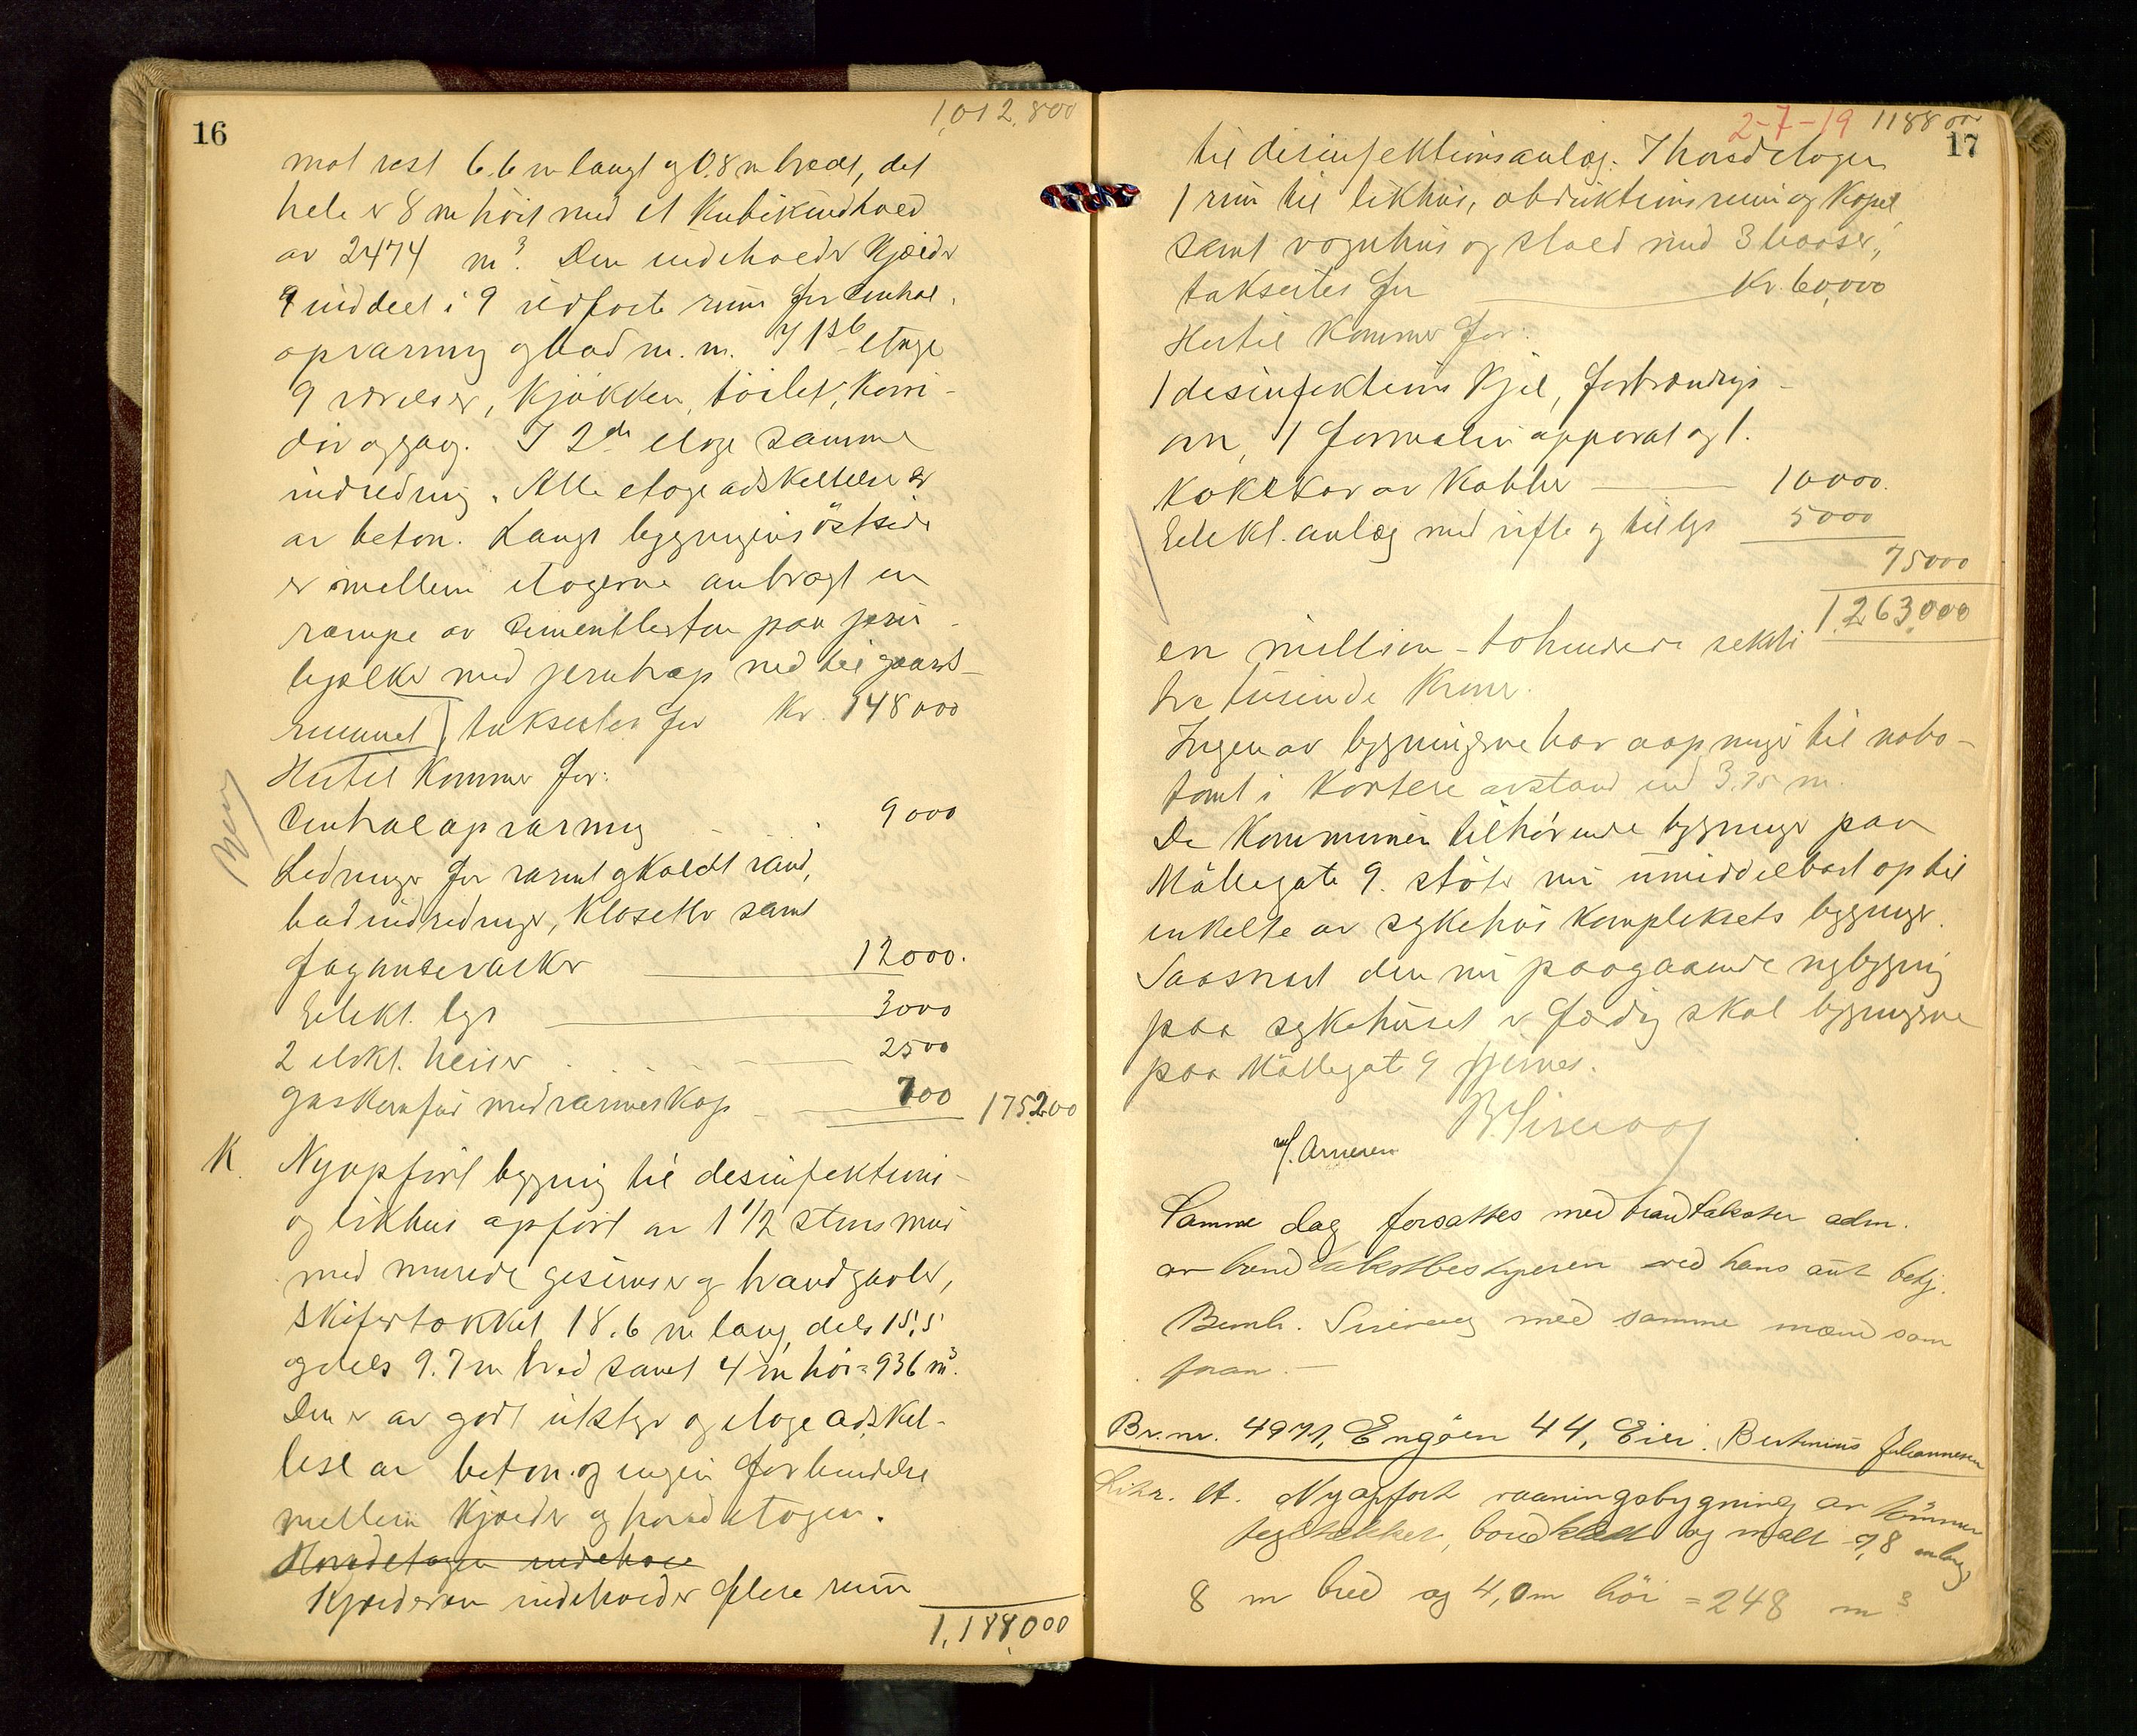 16
1,012,800
mot vest 6.6 m langt og 0.8 m bredt, det
hele er 8 m høit med et kubikindhold
av 2474 m³. Den indeholder kjælder
inddelt i 9 utforte rum for central-
opvarming og bad m.m. I 1ste etage
9 værelser, kjøkken, toilet, korri-
dor og gang. I 2den etage samme
indredning. Alle etageadskillelser er
av beton. Langs bygningens østside
er mellem etagerne anbragt en
rampe av cementbeton paa jern-
bjælker med jerntrap ned til gaards-
rummet, takseres for Kr. 148000
Hertil kommer for:
Centralopvarming 9000
Ledninger for varmt og koldt vand,
badindredninger, klosetter samt
fajancevasker 12000.
Elekt. lys 3000
2 elekt. heiser 2500
gaskomfur med varmeskap 700 175,200
K. Nyopført bygning til desinfektions-
og likhus opført av 1 1/2 stens mur
med murede gesimser og brandgavler,
skifertækket 18.6 m lang, dels 15,5
og dels 9.7 m bred samt 4 m høi = 936 m³.
Den er av godt utstyr og etageadskil-
lese av beton og ingen forbindelse
mellem kjælder og hovedetagen.
Hovedetagen indehol
Kjælderen indeholder flere rum
1,188,000
2-7-19 1188000
17
til desinfektionsanlæg. I hovedetagen
1 rum til likhus, obduktionsrum og kapel
samt vognhus og stald med 3 baaser,
takseres for Kr. 60,000
Hertil kommer for:
1 desinfektions kjel, forbrændings-
ovn, 1 formalin apparat og 1.
kokekar av kobber 10000.
Elekt. anlæg med vifte og til lys 5000
75000
1,263,000
en million - tohundrede seksti
tre tusinde kroner.
Ingen av bygningerne har aapninger til nabo-
tomt i kortere avstand end 3.75 m.
De kommunen tilhørende bygninger paa
Møllegate 9. støter nu umiddelbart op til
enkelte av sykehus kompleksets bygninger.
Saasnart den nu paagaaende nybygning
paa sykehuset er færdig skal bygningerne
paa Møllegate 9 fjernes.
Arnesen
Samme dag forsattes med brandtakster adm.
av brandtakstbestyreren ved hans aut betj.
Bernh. med samme mænd som
foran. —
Br.nr. 4971, Engøen 44, Eier. Berthinius Johannesen
Litr. A. Nyopført vaaningsbygning av tømmer
tegltækket, bordklædt og malt 7,8 m lang
8 m bred og 4,0 m høi = 248 m³